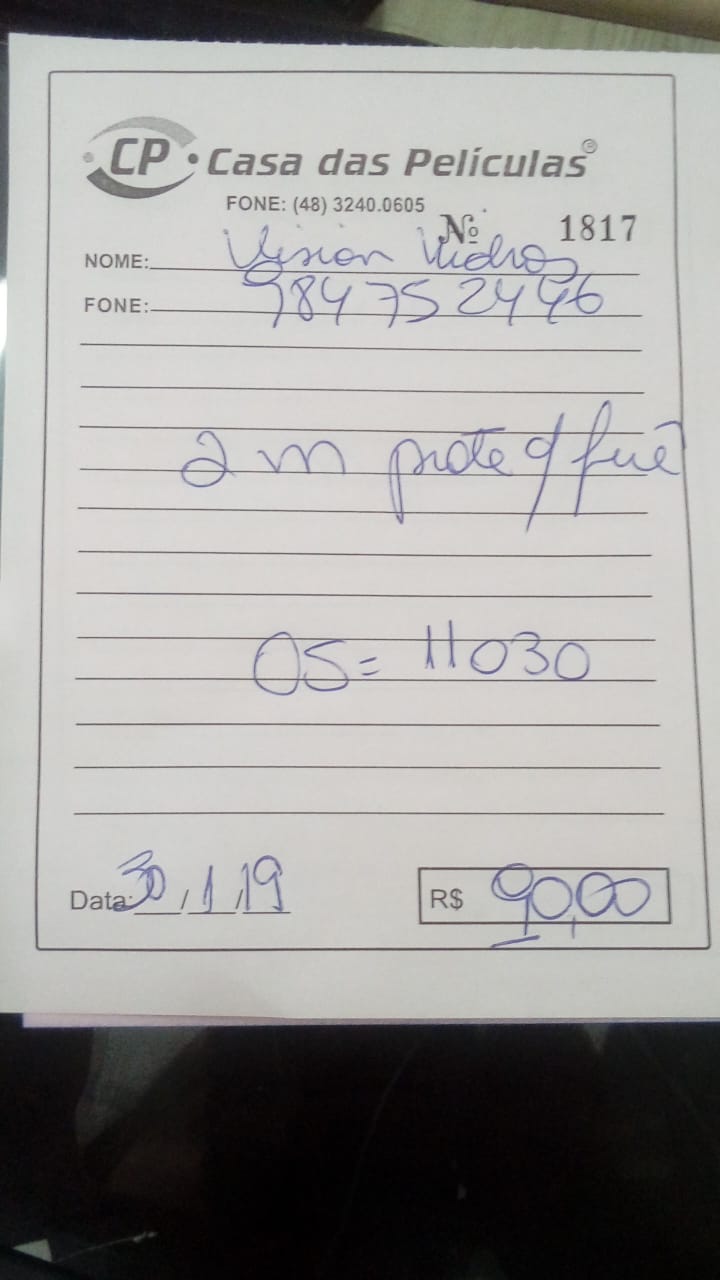 CP · Casa das Películas®
FONE: (48) 3240.0605
Nº 1817
NOME: Vision Vidros
FONE: 984752446
2 m prote q/ fuê
OS = 11030
Data: 30/1/19
R$ 90,00